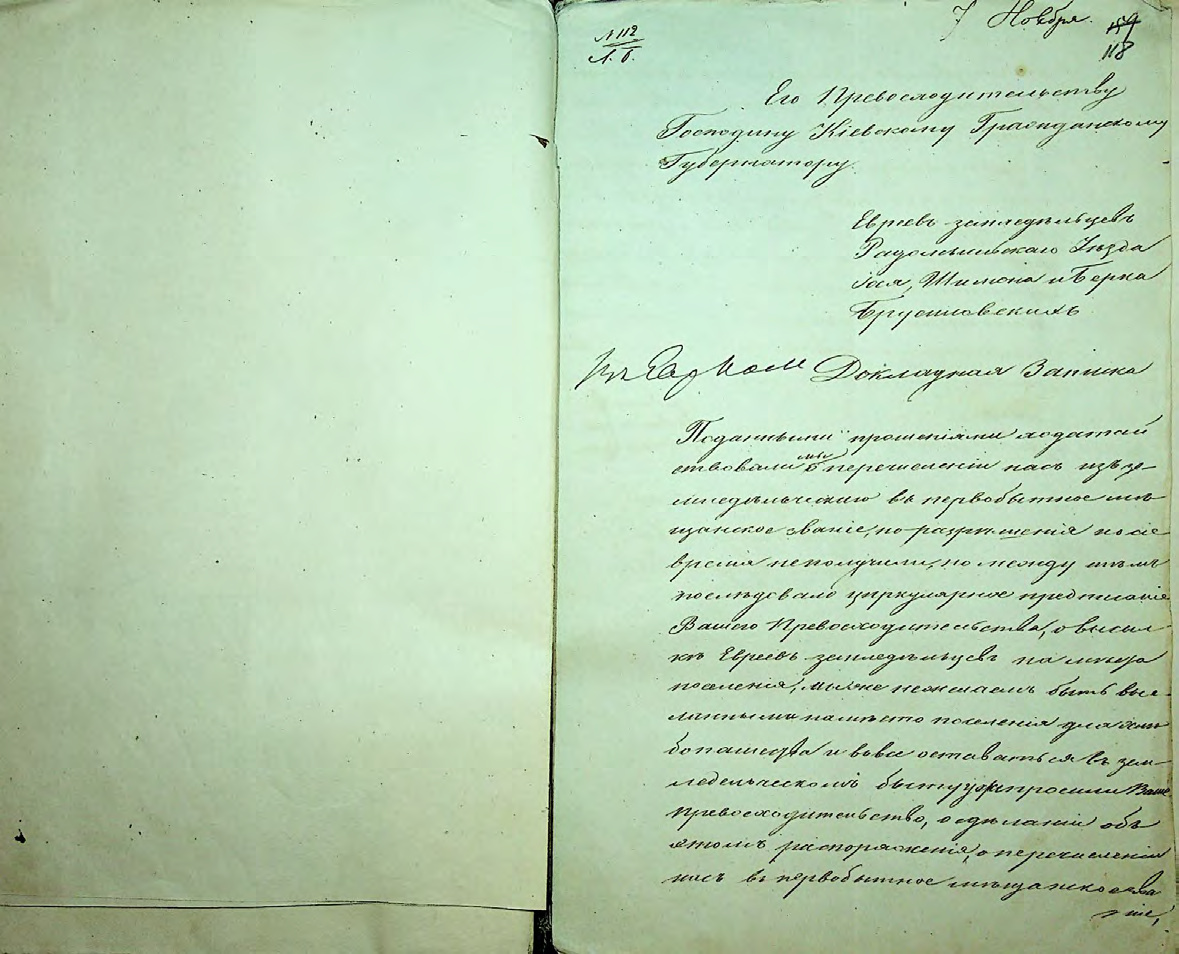 7 Ноября.
159
118
№ 112
Л. б.
Его Превосходительству
Господину Кіевскому Гражданскому
Губернатору.
Евреевъ земледѣльцевъ
Радомысльскаго Уѣзда
Шимона и Берка
Брусиловскихъ
Докладная Записка
Поданными прошеніями ходатай
ствовали мы о перечисленіи насъ изъ зе-
мледѣльческаго въ первобытное мѣ
щанское званіе, но разрѣшенія по сіе
время неполучили, но между тѣмъ
послѣдовало циркулярное предписаніе
Вашего Превосходительства, о высыл-
кѣ Евреевъ земледѣльцевъ на мѣста
поселенія, мы же нежелаемъ быть выс-
ланными на мѣсто поселенія для хлѣ
бопашества и вовсе оставаться въ зем-
ледельческомъ быту просили Ваше
Превосходительство, о сдѣланіи объ
этомъ распоряженія, о перечисленіи
насъ въ первобытное мѣщанское зва
ніе,